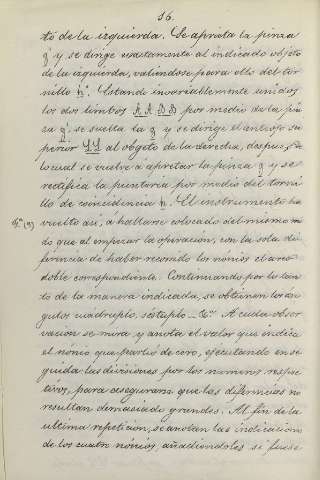 16.
to de la izquierda. Se aprieta la pinza
q' y se dirige exactamente al indicado objeto
de la izquierda, valiendose para ello del tor-
nillo h'. Estando invariablemente unidos
los dos limbos A A B B por medio de la pin
za q', se suelta la q y se dirige el anteojo su
perior LL al objeto de la derecha, despues de
lo cual se vuelve á apretar la pinza q y se
rectifica la punteria por medio del torni
llo de coincidencia h. El instrumento ha
vuelto asi, á hallarse colocado del mismo mo
do que al empezar la operacion, con la sola di
ferencia de haber recorrido los nónios el arco
doble correspondiente. Continuando por lo tan
to de la manera indicada, se obtienen los án
gulos cuadruplo, séstuplo - &a. A cada obser
vacion se mira y anota el valor que indica
el nónio que partió de cero, ejecutando en se
guida las divisiones por los numeros respec
tivos, para asegurarse que las diferencias no
resultan demasiado grandes. Al fin de la
ultima repeticion, se anotan las indicaciones
de los cuatro nónios, añadiendoles si fuese